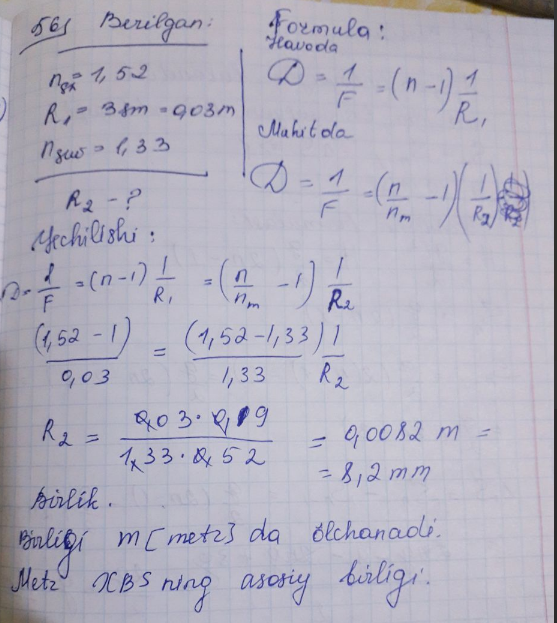 561 Berilgan:
nш = 1,52
R₁ = 3sm = 0,03m
nsuv = 1,33
R₂ - ?
Formula:
Havoda
D = 1/F = (n - 1) 1/R₁
Muhitda
D = 1/F = (n/nm - 1)(1/R₂)
Yechilishi:
D = 1/F = (n-1) 1/R₁ = (n/nm - 1) 1/R₂
(1,52 - 1)/0,03 = (1,52 - 1,33)/1,33 1/R₂
R₂ = 0,03 · 0,19 / 1,33 · 0,52 = 0,0082 m =
= 8,2 mm
Birlik.
Birligi m [metr] da o'lchanadi.
Metr XBS ning asosiy birligi.